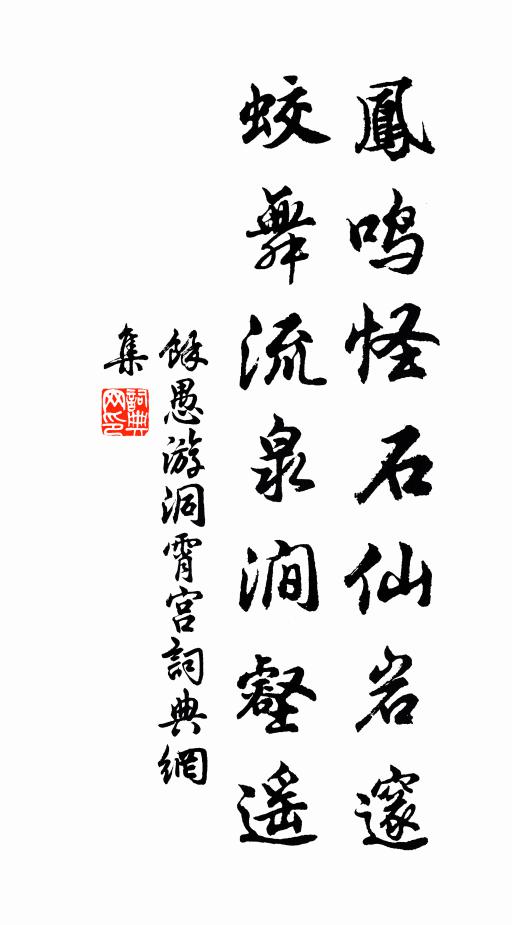 鳳鸣怪石仙岩邃
蛟舞流泉澗壑遥
餘愚游洞霄宫詞典網
集
詞典网印